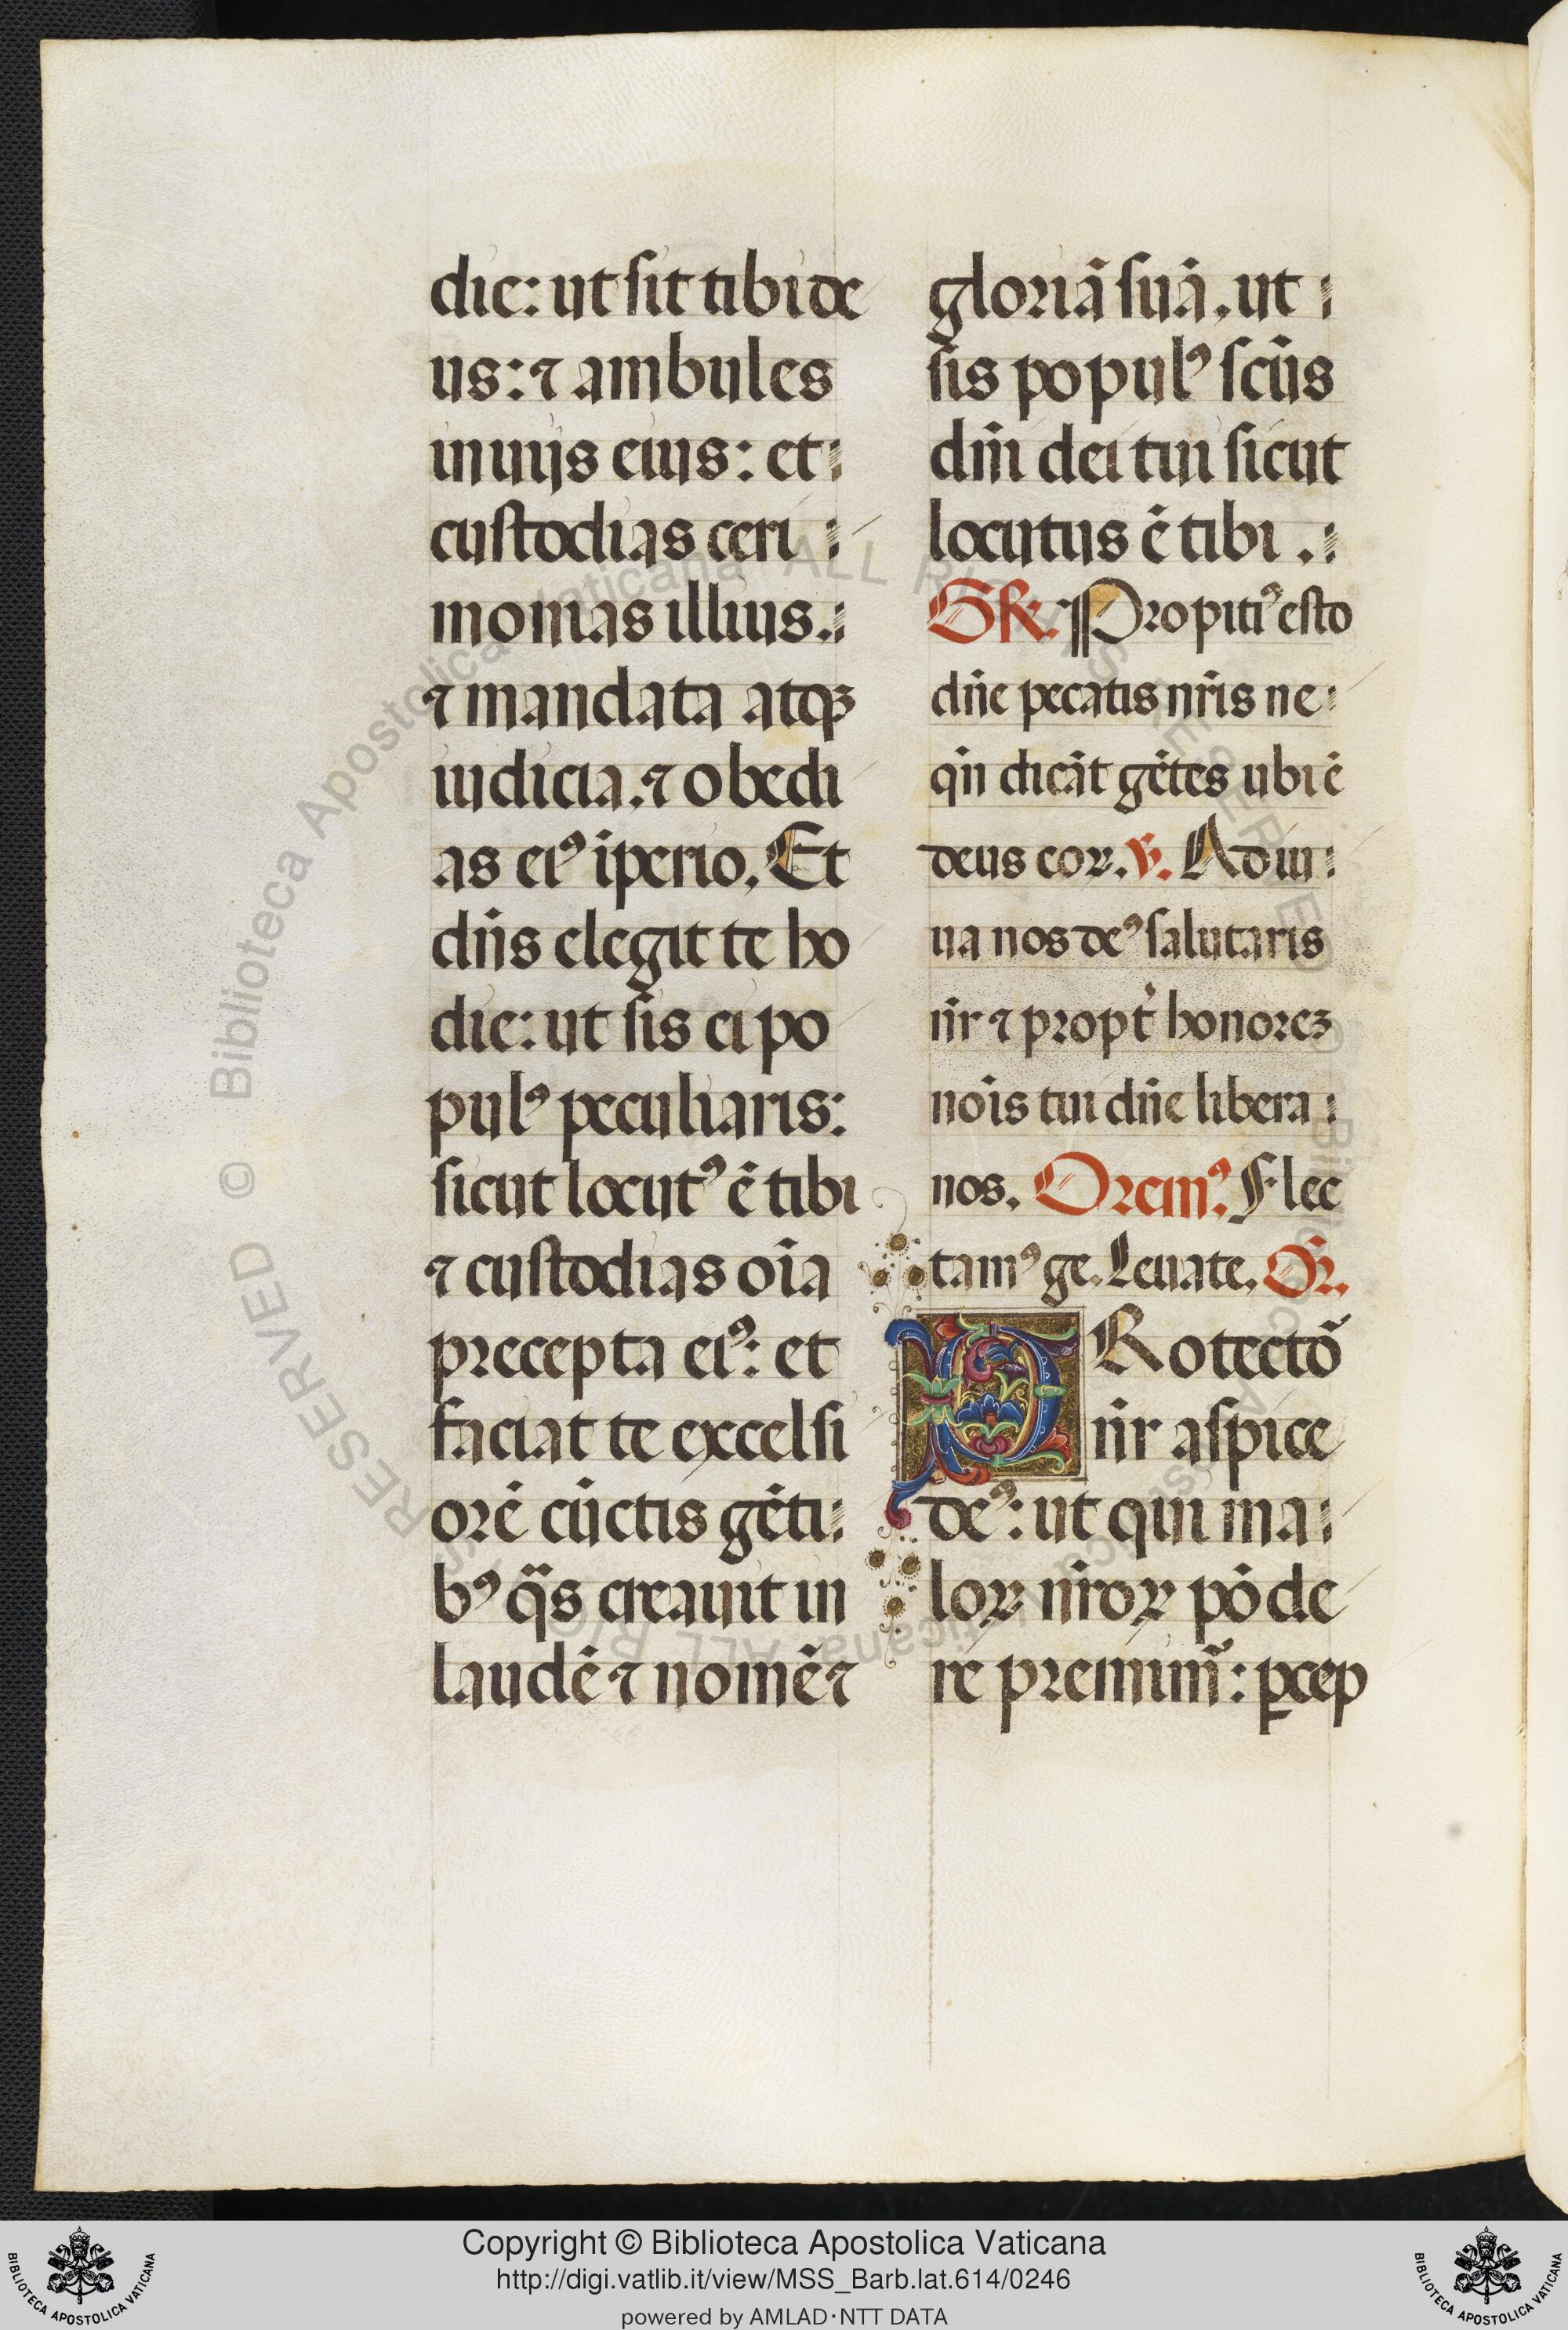 die: ut sit tibi de
us: ⁊ ambules
in uijs eius: et
custodias ceri
monias illius.
⁊ mandata atqꝫ
iudicia. ⁊ obedi
as eiꝰ īperio. Et
dn̄s elegit te ho
die: ut sis ei po
pulꝰ peculiaris:
sicut locutꝰ ē tibi
⁊ custodias oīa
precepta eiꝰ: et
faciat te excelsi
orē cūctis gēti
bꝰ q̄s creauit in
laudē ⁊ nomē ⁊
gloriā suā. ut
sis populꝰ scūs
dn̄i dei tui sicut
locutus ē tibi.
GR. Propitiꝰ esto
dn̄e pecatis nr̄is ne
qn̄ dicāt gētes ubi ē
deus eoꝝ. ℣. Adiu
ua nos deꝰ salutaris
nr̄ ⁊ propt̄ honoreꝫ
noīs tui dn̄e libera
nos. Oremꝰ. Flec
tamꝰ ge. Leuate. Or.
PRotectō
nr̄ aspice
deꝰ: ut qui ma
loꝝ nr̄oꝝ pōde
re premim̄: ꝑcep
© Biblioteca Apostolica Vaticana ALL RIGHTS RESERVED
Copyright © Biblioteca Apostolica Vaticana
http://digi.vatlib.it/view/MSS_Barb.lat.614/0246
powered by AMLAD·NTT DATA
BIBLIOTECA APOSTOLICA VATICANA
BIBLIOTECA APOSTOLICA VATICANA